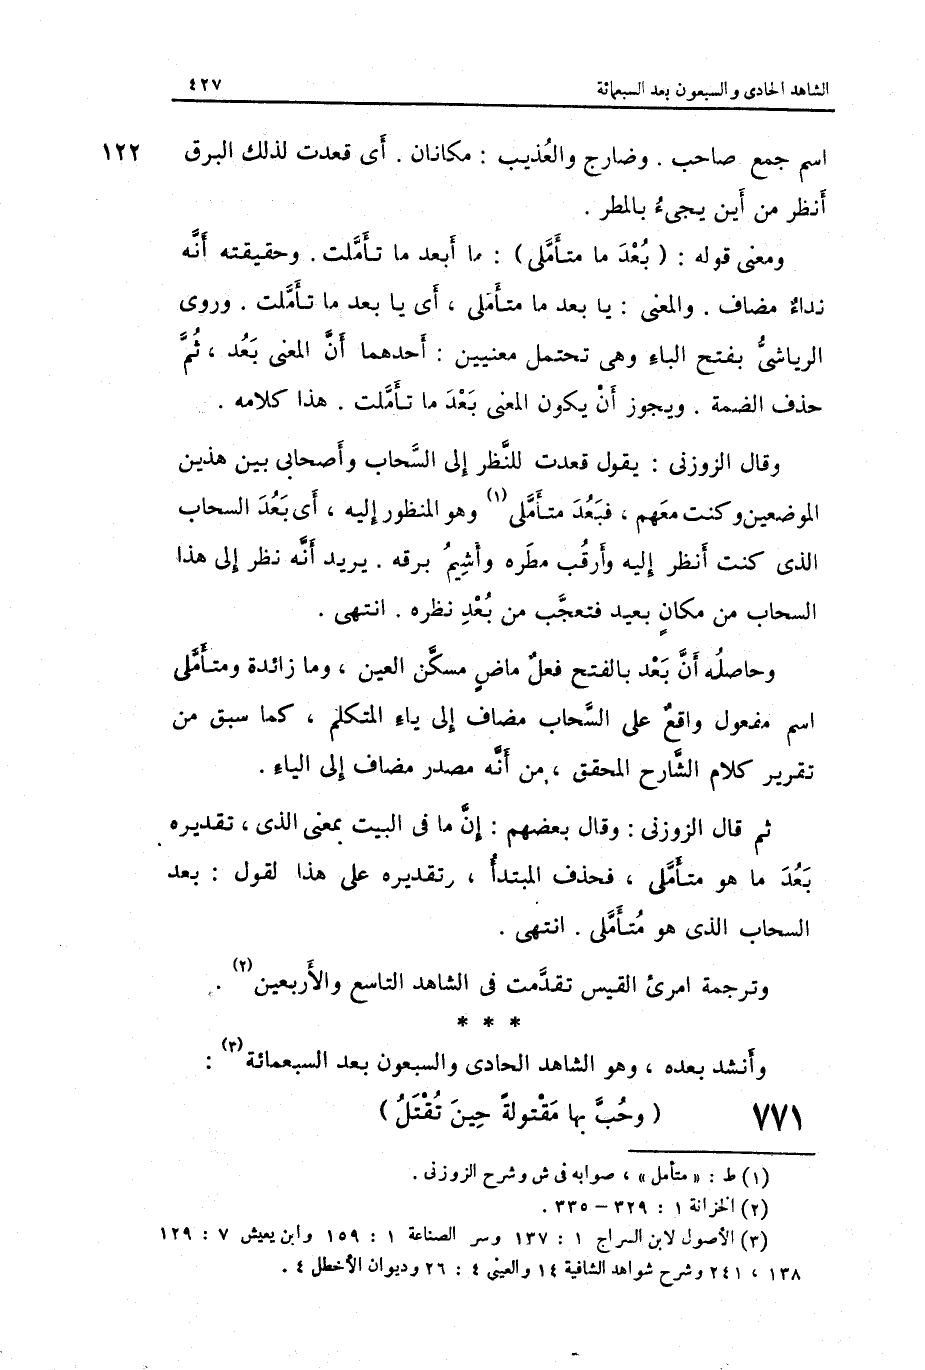 الشاهد الحادى والسبعون بعد السبعمائة ٤٢٧
اسم جمع صاحب . وضارج والعُذيب : مكانان . أَى قعدت لذلك البرق ١٢٢
أَنظر من أَين يجىءُ بالمطر .
ومعنى قوله : ( بُعْدَ ما متأَمَّلى ) : ما أَبعد ما تأَمَّلت . وحقيقته أَنَّه
نداءٌ مضاف . والمعنى : يا بعد ما متأَملى ، أَى يا بعد ما تأَمَّلت . وروى
الرياشىُّ بفتح الباء وهى تحتمل معنيين : أَحدهما أَنَّ المعنى بَعُد ، ثُمَّ
حذف الضمة . ويجوز أَنْ يكون المعنى بَعْدَ ما تأَمَّلت . هذا كلامه .
وقال الزوزنى : يقول قعدت للنَّظر إلى السَّحاب وأَصحابى بين هذين
الموضعين وكنت معهم ، فبَعُدَ متأَمَّلى (١) وهو المنظور إليه ، أَى بَعُدَ السحاب
الذى كنت أَنظر إليه وأَرقُب مطَره وأَشِيمُ برقه . يريد أَنَّه نظر إلى هذا
السحاب من مكانٍ بعيد فتعجَّب من بُعْدِ نظره . انتهى .
وحاصلُه أَنَّ بَعْد بالفتح فعلٌ ماضٍ مسكَّن العين ، وما زائدة ومتأَمَّلى
اسم مفعول واقعٌ على السَّحاب مضاف إلى ياءِ المتكلم ، كما سبق من
تقرير كلام الشَّارح المحقق ، من أَنَّه مصدر مضاف إلى الياءِ .
ثم قال الزوزنى : وقال بعضهم : إنَّ ما فى البيت بمعنى الذى ، تقديره
بَعُدَ ما هو متأَمَّلى ، فحذف المبتدأُ ، وتقديره على هذا لقول : بعد
السحاب الذى هو مُتأَمَّلى . انتهى .
وترجمة امرئ القيس تقدَّمت فى الشاهد التاسع والأَربعين (٢) .
* * *
وأَنشد بعده ، وهو الشاهد الحادى والسبعون بعد السبعمائة (٣) :
٧٧١ ( وحُبَّ بها مَقْتولةً حِينَ تُقْتَلُ )
(١) ط : « متأمل » ، صوابه فى ش وشرح الزوزنى .
(٢) الخزانة ١ : ٣٢٩ – ٣٣٥ .
(٣) الأصول لابن السراج ١ : ١٣٧ وسر الصناعة ١ : ١٥٩ وابن يعيش ٧ : ١٢٩
١٣٨ ، ٢٤١ وشرح شواهد الشافية ١٤ والعينى ٤ : ٢٦ وديوان الأخطل ٤ .